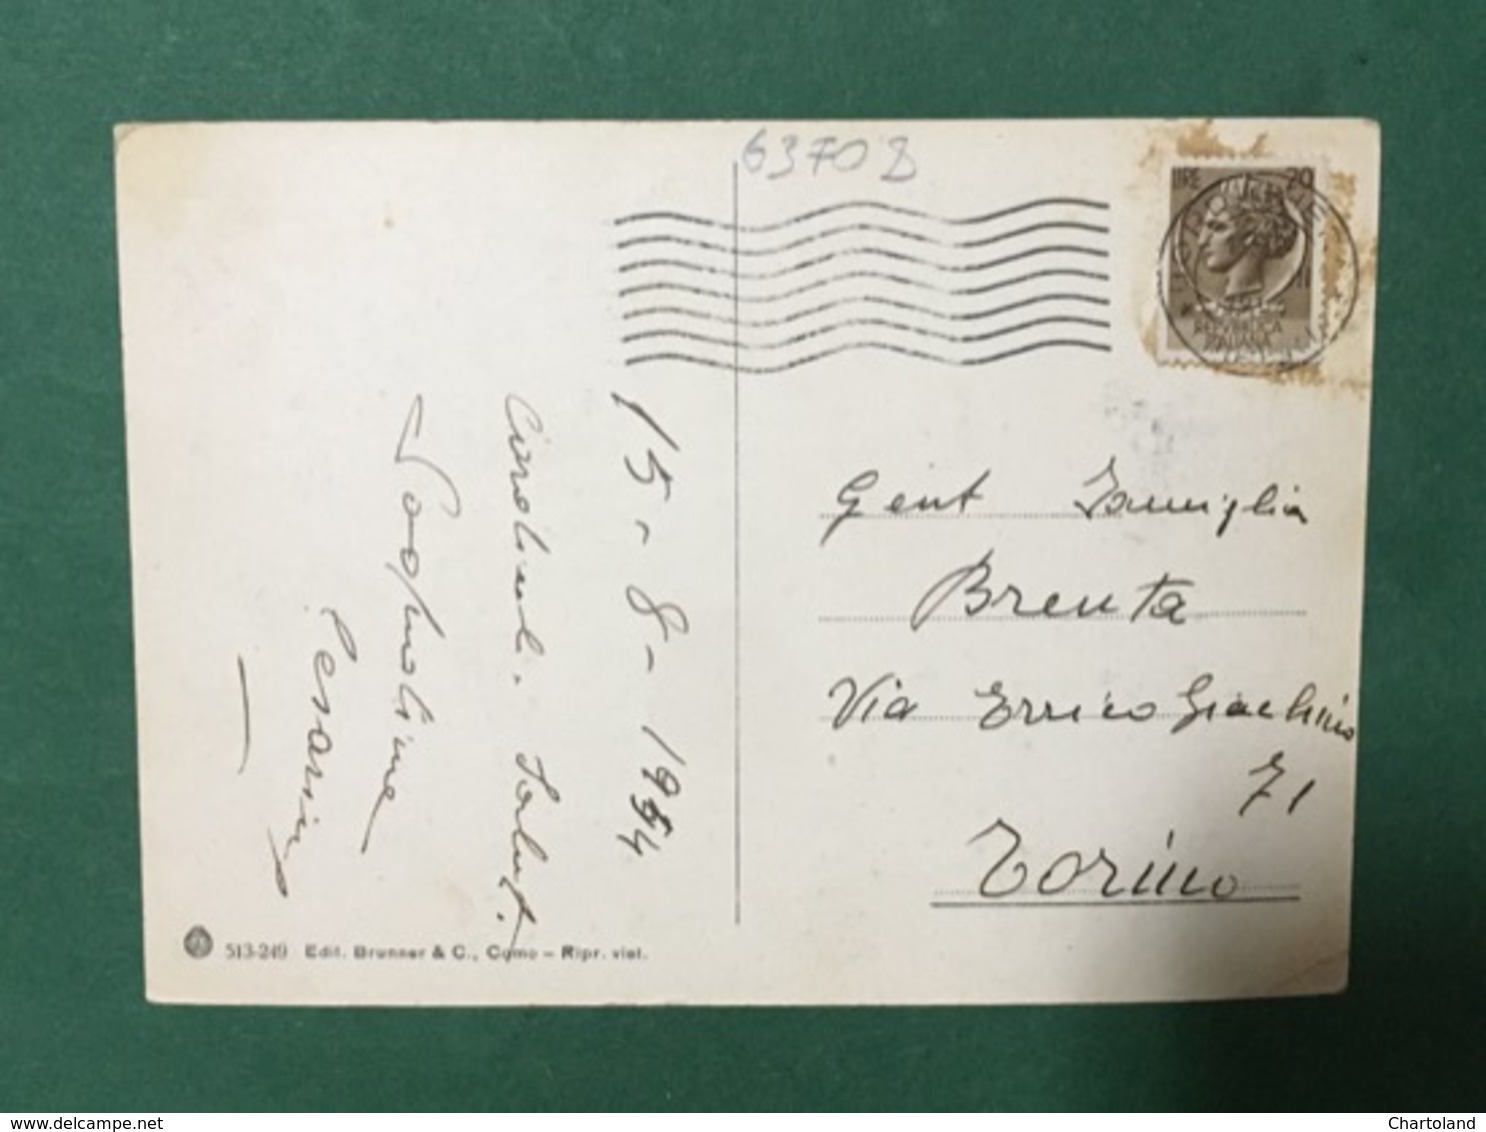 63708
LIRE 20
REPVBBLICA
ITALIANA
15-8-1954
Cordiali Saluti.
Pesarini
Gent Famiglia
Brenta
Via Errico Giachino
71
Torino
513-249 Edit. Brunner & C., Como - Ripr. viet.
delcampe.net
Chartoland